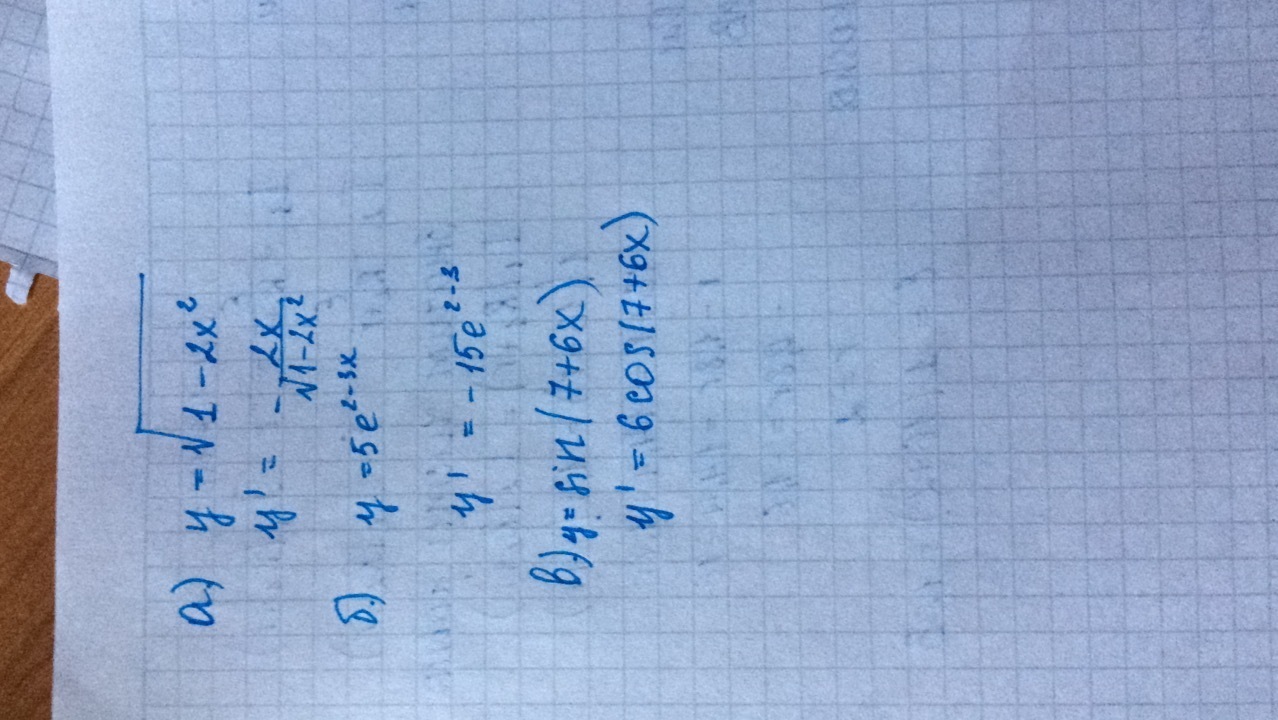 а) y = √1 - 2x²
y' = - 2x/√1-2x²
б) y = 5e^2-3x
y' = -15e^2-3
в) y = sin(7+6x)
y' = 6cos(7+6x)